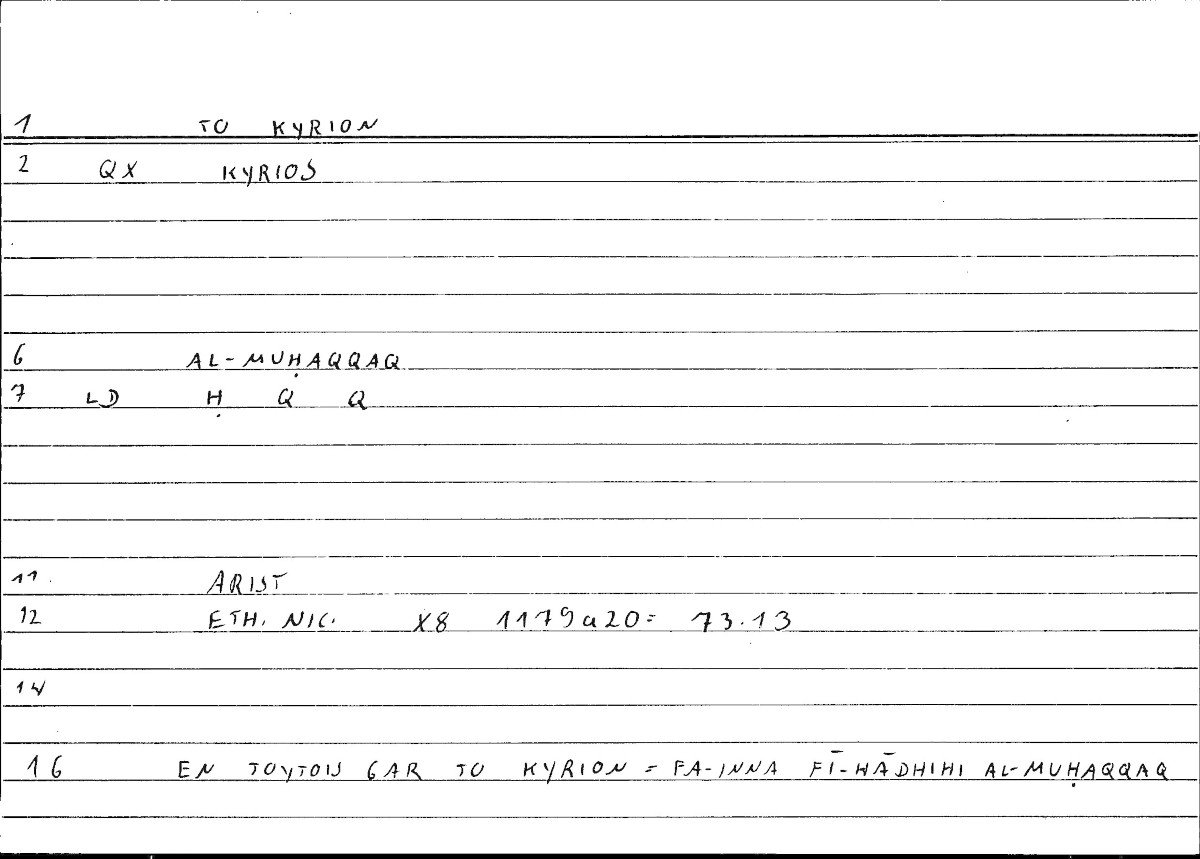 1 TO KYRION
2 QX KYRIOS
6 AL-MUḤAQQAQ
7 LD Ḥ Q Q
11 ARIST
12 ETH. NIC. X8 1179a20= 73.13
14
16 EN TOYTOIS GAR TO KYRION = FA-INNA FĪ-HĀDHIHI AL-MUḤAQQAQ